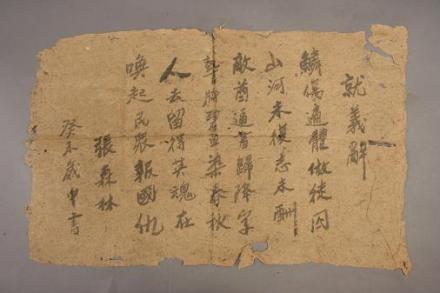 就義辭
鱗傷遍體做徒囚
山河未復志未酬
敵酋逼書歸降字
誓將碧血染春秋
人去留得英魂在
喚起民眾報國仇
張森林
癸未歲中書